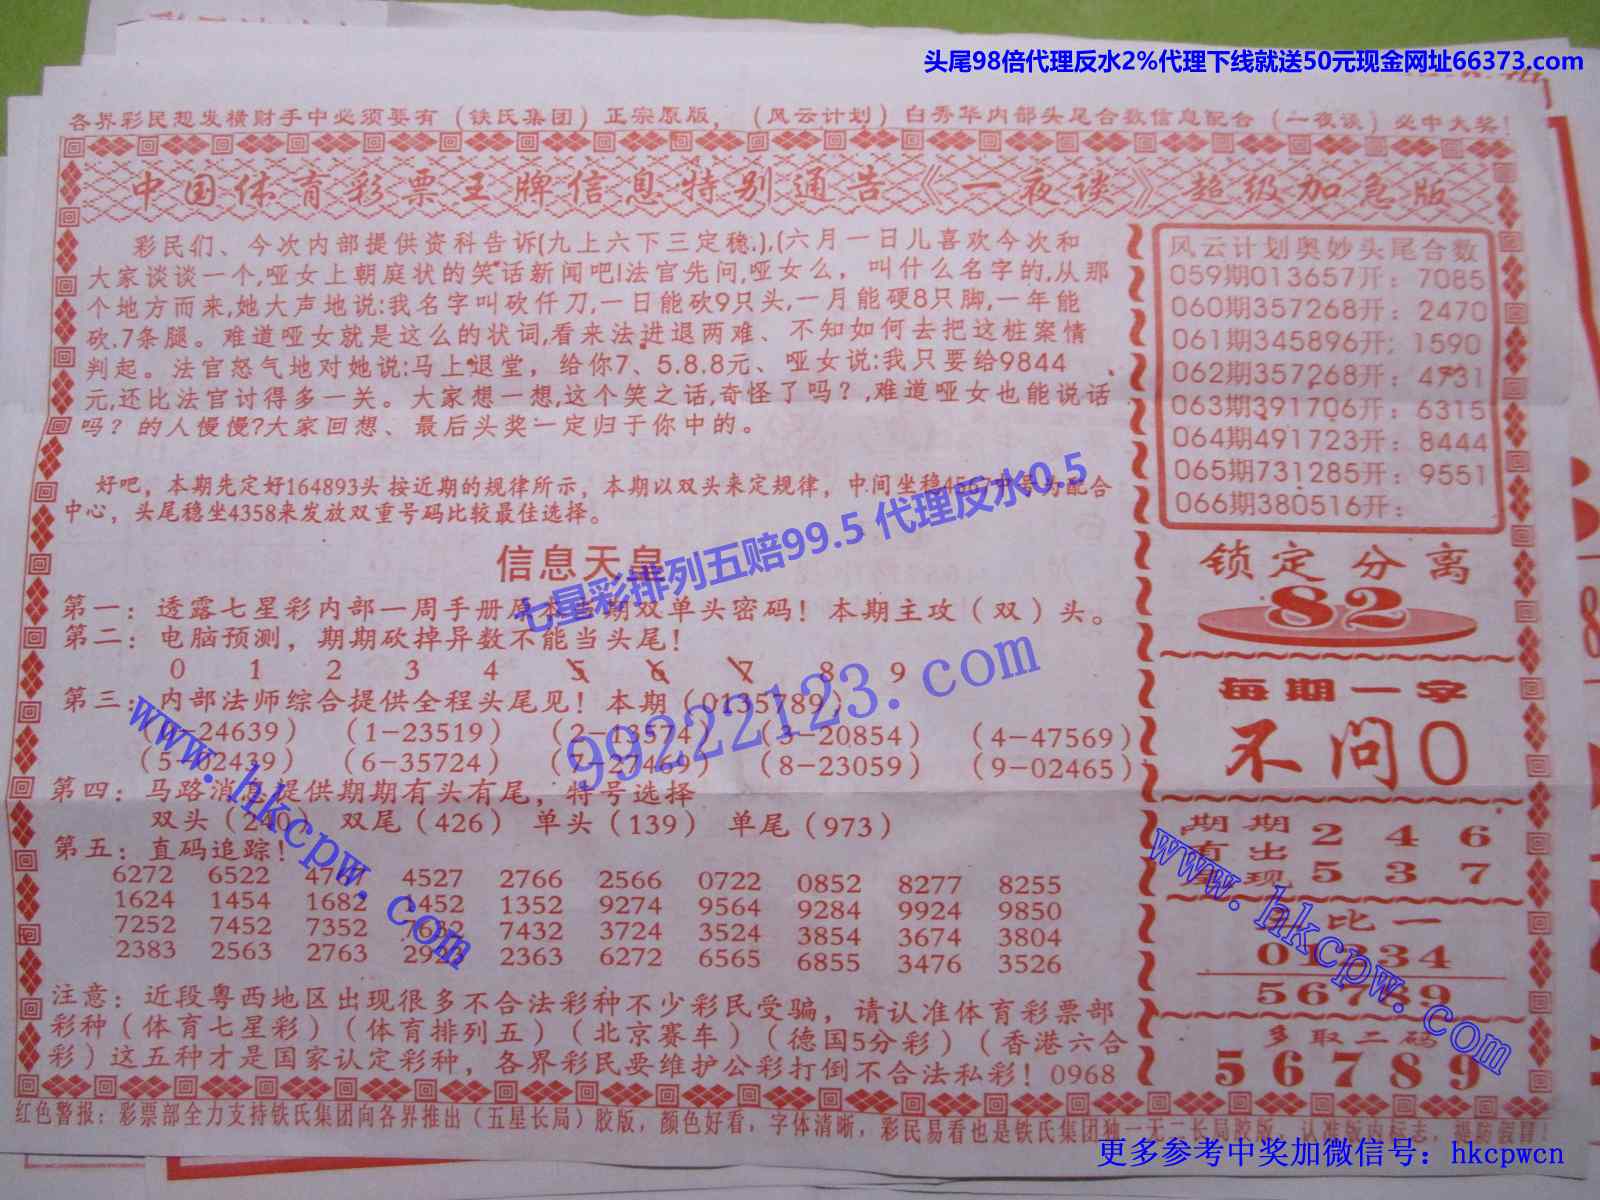 头尾98倍代理反水2%代理下线就送50元现金网址66373.com
各界彩民想发横财手中必须要有（铁氏集团）正宗原版，（风云计划）白秀华内部头尾合数信息配合（一夜谈）必中大奖！
中国体育彩票王牌信息特别通告《一夜谈》超级加急版
彩民们、今次内部提供资科告诉(九上六下三定稳.),(六月一日儿喜欢今次和
大家谈谈一个,哑女上朝庭状的笑话新闻吧!法官先问,哑女么，叫什么名字的,从那
个地方而来,她大声地说:我名字叫砍仟刀,一日能砍9只头,一月能硬8只脚,一年能
砍.7条腿。难道哑女就是这么的状词,看来法进退两难、不知如何去把这桩案情
判起。法官怒气地对她说:马上退堂，给你7、5.8.8元、哑女说:我只要给9844、
元,还比法官讨得多一关。大家想一想,这个笑之话,奇怪了吗？,难道哑女也能说话
吗？的人慢慢?大家回想、最后头奖一定归于你中的。
好吧，本期先定好164893头按近期的规律所示，本期以双头来定规律，中间坐稳4567 为配合
中心，头尾稳坐4358来发放双重号码比较最佳选择。
信息天皇
第一：透露七星彩内部一周手册 期双单头密码！本期主攻（双）头。
第二：电脑预测，期期砍掉异数不能当头尾！
0 1 2 3 4 5 6 7 8 9
第三：内部法师综合提供全程头尾见！本期（0135789）
（0-24639）（1-23519）（2-13574）（3-20854）（4-47569）
（5-02439）（6-35724）（7-27469）（8-23059）（9-02465）
第四：马路消息提供期期有头有尾，特号选择
双头（240）双尾（426）单头（139）单尾（973）
第五：直码追踪！
6272 6522 4527 2766 2566 0722 0852 8277 8255
1624 1454 1682 1452 1352 9274 9564 9284 9924 9850
7252 7452 7352 7632 7432 3724 3524 3854 3674 3804
2383 2563 2763 2923 2363 6272 6565 6855 3476 3526
注意：近段粤西地区出现很多不合法彩种不少彩民受骗，请认准体育彩票部
彩种（体育七星彩）（体育排列五）（北京赛车）（德国5分彩）（香港六合
彩）这五种才是国家认定彩种，各界彩民要维护公彩打倒不合法私彩！0968
风云计划奥妙头尾合数
059期013657开：7085
060期357268开：2470
061期345896开：1590
062期357268开：4731
063期391706开：6315
064期491723开：8444
065期731285开：9551
066期380516开：
锁定分离
82
每期一字
不问0
期期 2 4 6
有出
现 5 3 7
比一
01234
56789
多取二码
56789
红色警报：彩票部全力支持铁氏集团向各界推出（五星长局）胶版，颜色好看，字体清晰，彩民易看也是铁氏集团独一无二长局胶版，认准版内标志，提防假冒！
七星彩排列五赔99.5 代理反水0.5
99222123.com
www.hkcpw.com
www.hkcpw.com
更多参考中奖加微信号：hkcpwcn